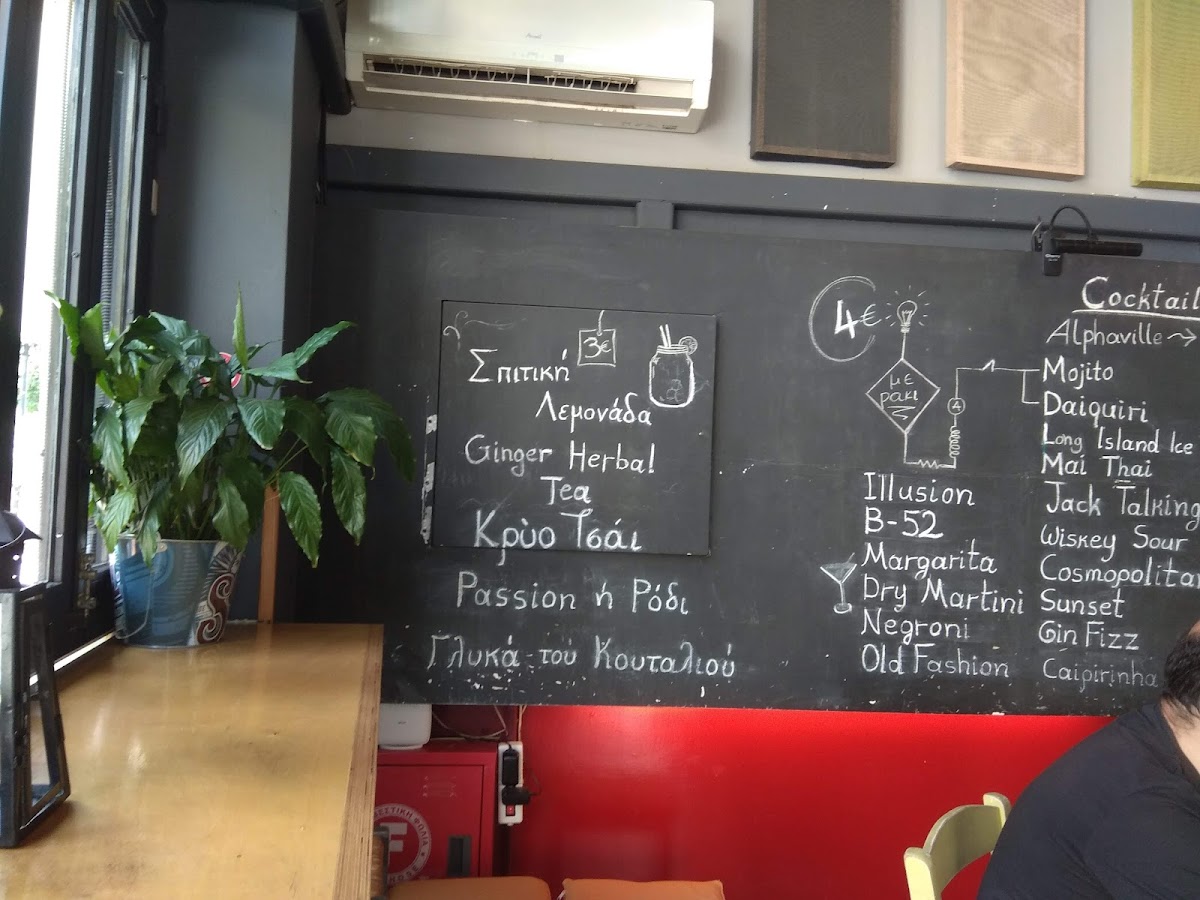 3€
Σπιτική
Λεμονάδα
Ginger Herbal
Tea
Κρύο Τσάι
Passion ή Ρόδι
Γλυκά του Κουταλιού
4€
με
ρακι
4
Illusion
B-52
Margarita
Dry Martini
Negroni
Old Fashion
Cocktail
Alphaville
Mojito
Daiquiri
Long Island Ice
Mai Thai
Jack Talking
Wiskey Sour
Cosmopolitan
Sunset
Gin Fizz
Caipirinha
F